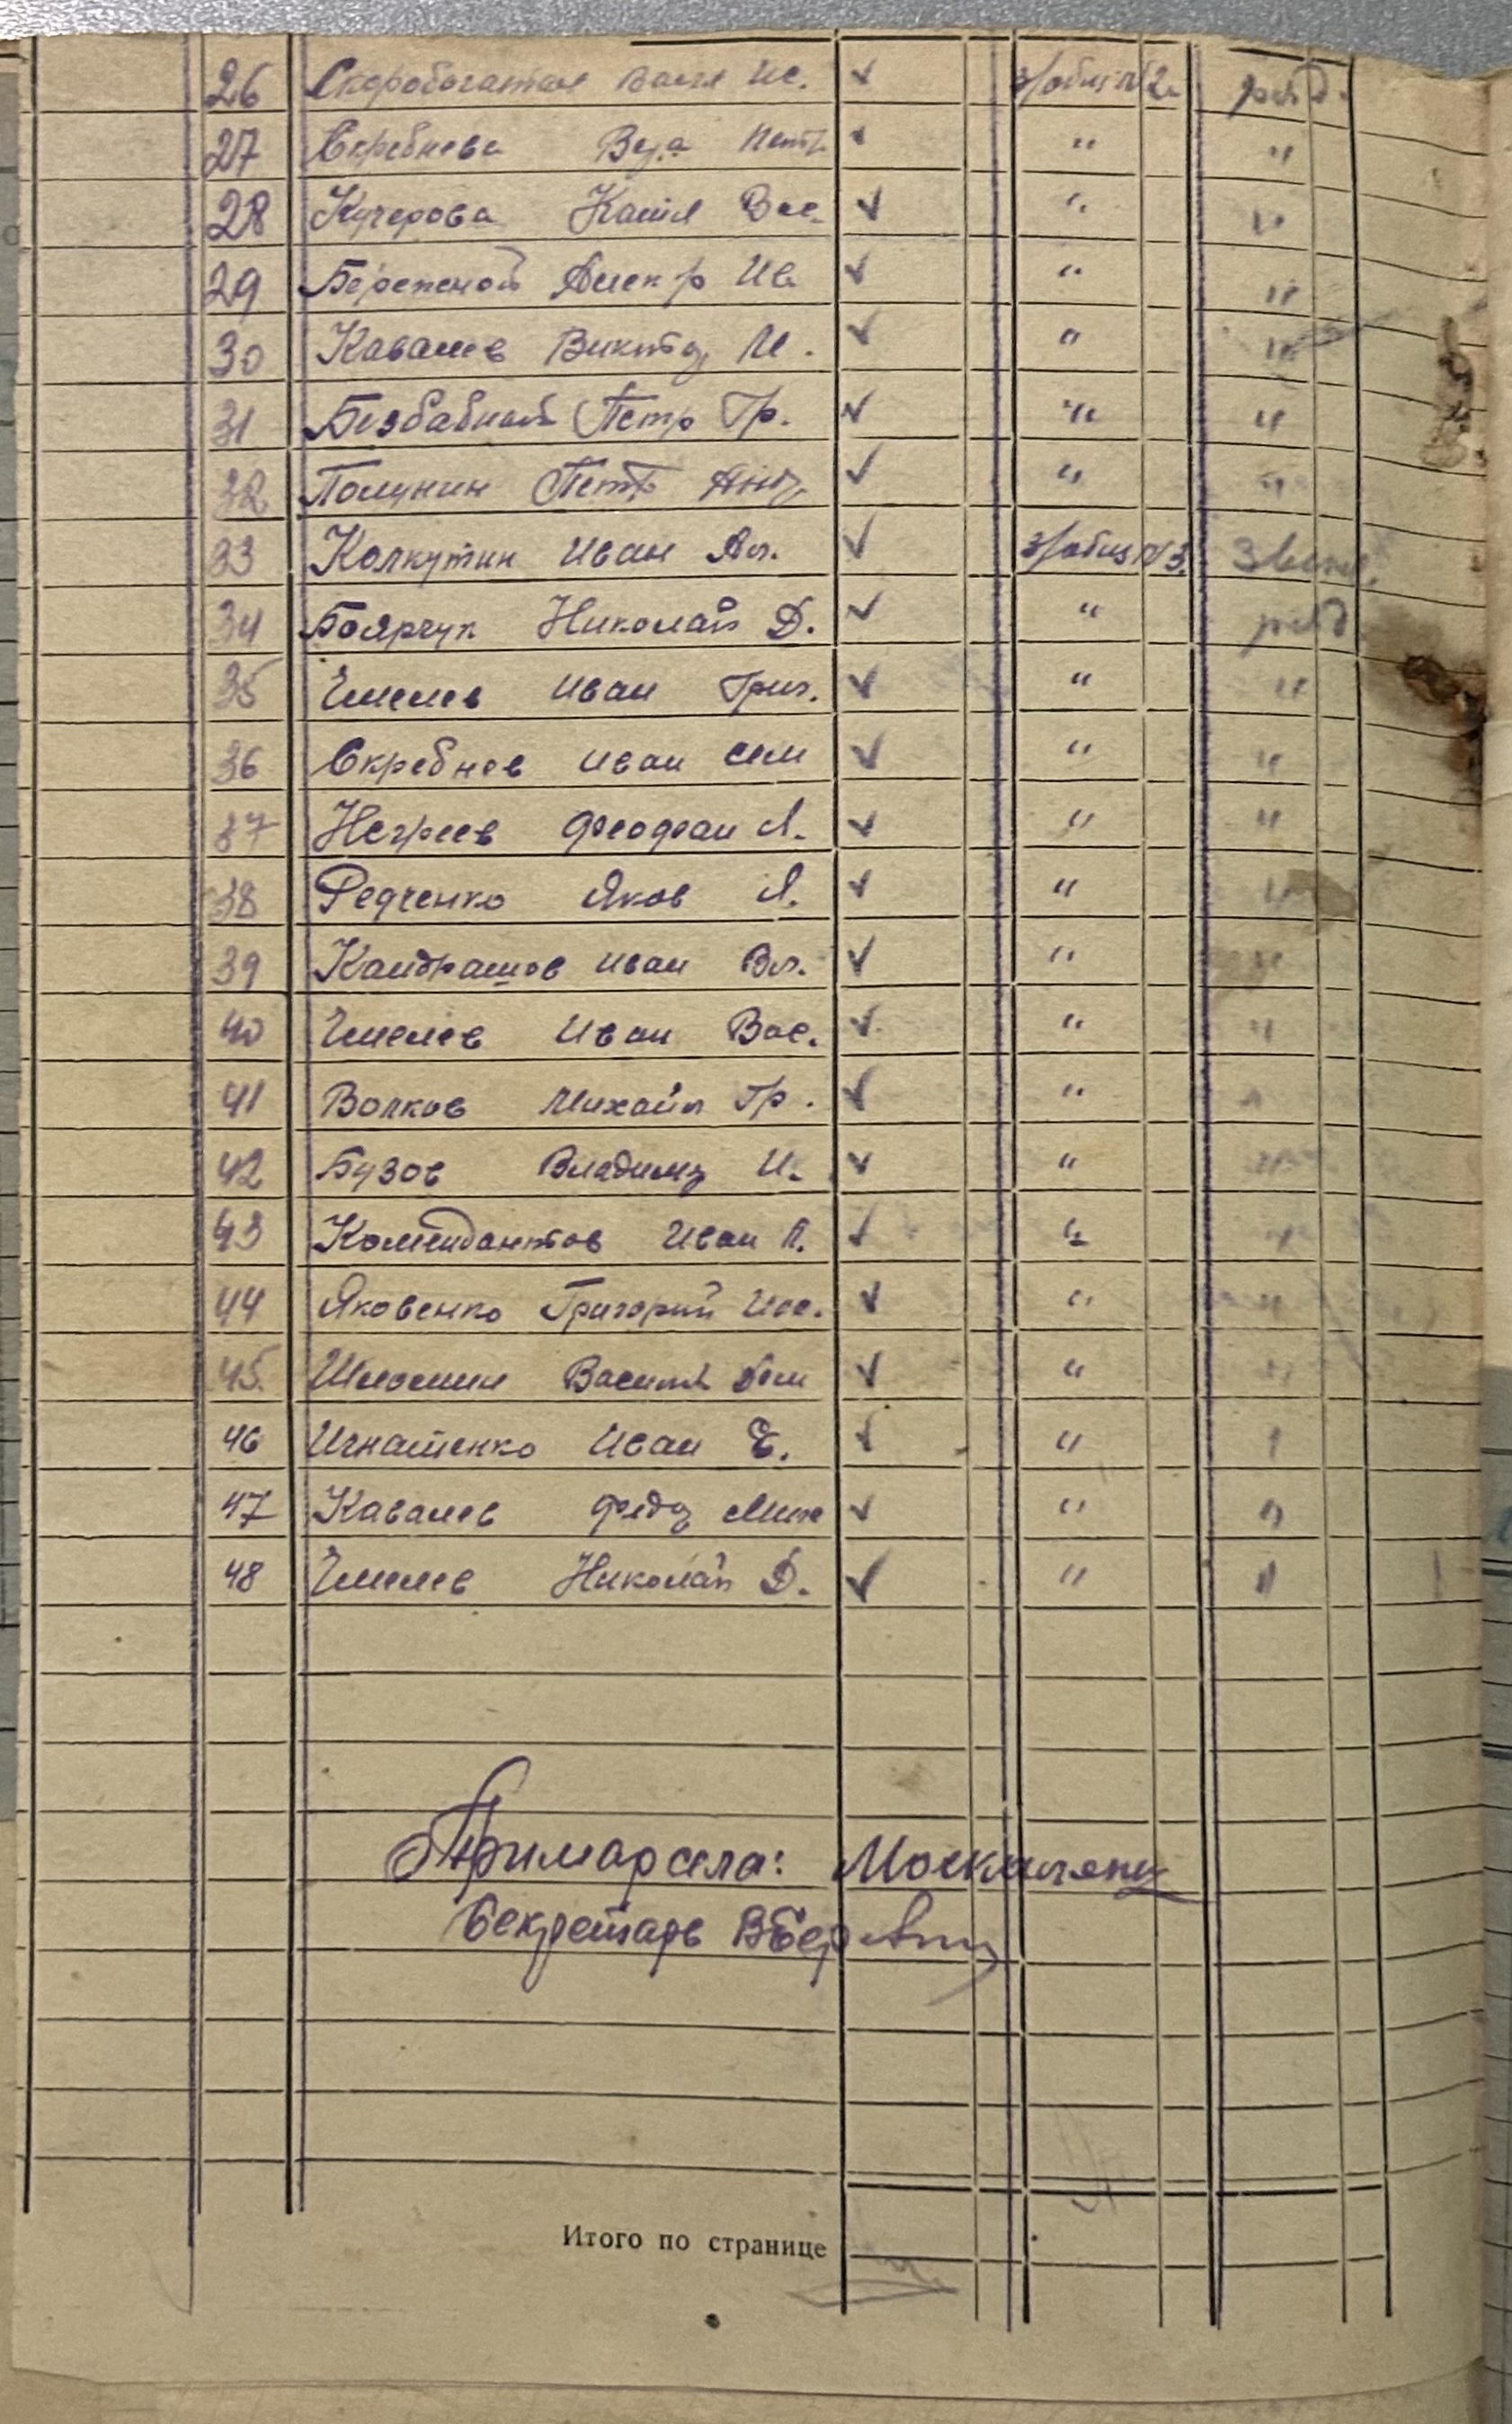 26 Скоробогатов Васил Ис. ✓ з/общ №2. ряд.
27 Скребнева Вера Петр ✓ " "
28 Кучерова Катя Вас. ✓ " "
29 Береженой Алекр Ив ✓ " "
30 Кавалев Виктор И. ✓ " "
31 Безбабный Петр Гр. ✓ " "
32 Полунин Петр Анд ✓ " "
33 Колкутин Иван Ал. ✓ з/общ №3. Звен.
34 Боярчук Николай Д. ✓ " ряд
35 Емелев Иван Григ. ✓ " "
36 Скребнев Иван Сем ✓ " "
37 Негреев Феофан Л. ✓ " "
38 Редченко Яков Л. ✓ " "
39 Кандрашов Иван Вл. ✓ " "
40 Емелев Иван Вас. ✓ " "
41 Волков Михаил Гр. ✓ " "
42 Бузов Владимир И. ✓ " "
43 Комендантов Иван П. ✓ " "
44 Яковенко Григорий Иос. ✓ " "
45. Василий ✓ " "
46 Игнатенко Иван Е. ✓ " "
47 Кавалев Федор Мих ✓ " "
48 Емелев Николай Д. ✓ " "
Примар села:
Секретарь
Итого по странице